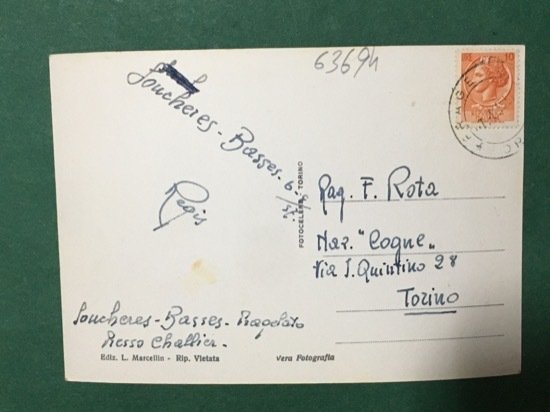 63694
Soucheres-Basses-6/9/54
Regis
FOTOCELERE TORINO
10
Rag. F. Rota
Naz. "Cogne"
Via S. Quintino 28
Torino
Soucheres-Basses-Pragelato
Presso Challier-
Ediz. L. Marcellin - Rip. Vietata
Vera Fotografia